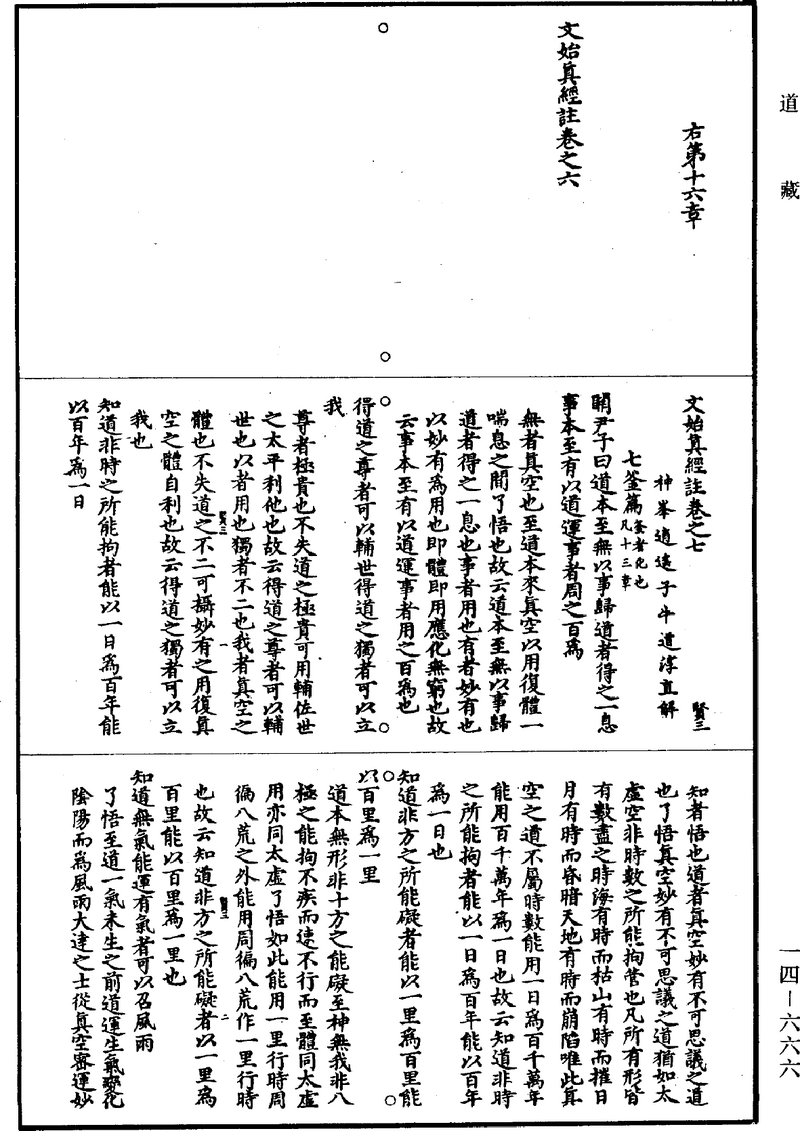 道藏
右第十六章
文始真經註卷之六
文始真經註卷之七
賢三
神峯逍遙子牛道淳直解
七釜篇釜者化也凡十三章
關尹子曰道本至無以事歸道者得之一息
事本至有以道運事者周之百為
無者真空也至道本來真空以用復體一
喘息之間了悟也故云道本至無以事歸
道者得之一息也事者用也有者妙有也
以妙有為用也即體即用應化無窮也故
云事本至有以道運事者用之百為也
得道之尊者可以輔世得道之獨者可以立
我
尊者極貴也不失道之極貴可用輔佐世
之太平利他也故云得道之尊者可以輔
世也以者用也獨者不二也我者真空之
體也不失道之不二可攝妙有之用復真
空之體自利也故云得道之獨者可以立
我也
知道非時之所能拘者能以一日為百年能
以百年為一日
知者悟也道者真空妙有不可思議之道
也了悟真空妙有不可思議之道猶如太
虛空非時數之所能拘管也凡所有形皆
有數盡之時海有時而枯山有時而摧日
月有時而昏暗天地有時而崩陷唯此真
空之道不屬時數能用一日為百千萬年
能用百千萬年為一日也故云知道非時
之所能拘者能以一日為百年能以百年
為一日也
知道非方之所能礙者能以一里為百里能
以百里為一里
道本無形非十方之能礙至神無我非八
極之能拘不疾而速不行而至體同太虛
用亦同太虛了悟如此能用一里行時周
徧八荒之外能用周徧八荒作一里行時
也故云知道非方之所能礙者以一里為
百里能以百里為一里也
知道無氣能運有氣者可以召風雨
了悟至道一氣未生之前道運生氣變化
陰陽而為風雨大達之士從真空密運妙
賢三
一
賢三
二
一四—六六六